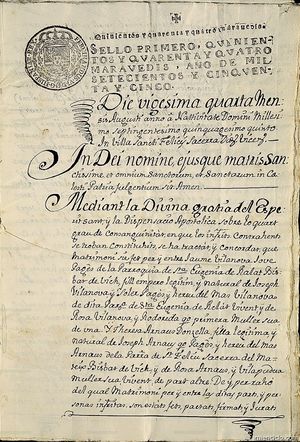 Quinientos y quarenta y quatro maravedis.
SELLO PRIMERO, QVINIEN-
TOS Y QVARENTA Y QVATRO
MARAVEDIS, AÑO DE MIL
SETECIENTOS Y CINQVEN-
TA Y CINCO.
Die vigesima quarta Men-
sis Augusti anno à Nativitate Domini Millesi-
mo septingentesimo quinquagesimo quinto
In Villa Sancti Felicis
In Dei nomine, ejusque matris San-
ctissime et omnium Sanctorum, et Sanctarum in Ca-
lesti Patria fulgentium sit Amen.
Mediant la Divina gratia del Espe-
rit sant y la Dispensacio Apostolica sobre lo quart
grau de consanguinitat, en que los infrits Contrahents
se troban Constituhits, se ha tractat, y Concordat, que
Matrimoni sia fet per y entre Jaume Vilanova Jove
Pagès de la Parroquia de Sta Eugenia de
Bisbat de Vich, fill llegitim y natural de Joseph
Vilanova y Pagès y hereu del Mas Vilanova
de dita Parra de Sta Eugenia de Vivent y de
Rosa Vilanova y primera Muller sua
de una. Y Theresa Arnaus Donzella, filla legitima, y
natural de Joseph Arnaus Pagès, y hereu del mas
Arnaus de la Parra de St Feliu
Bisbat de Vich, y de Rosa Arnaus, y
muller sua Vivent, de part altre. De, y per raho
del qual Matrimoni per y entre las ditas parts, y per-
sonas infritas, son estats fets, pactats, firmats y Jurats